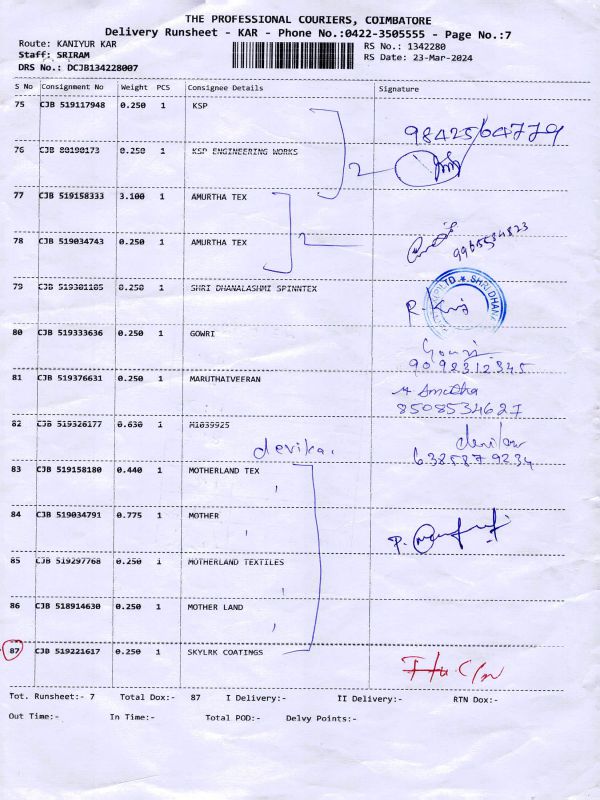 THE PROFESSIONAL COURIERS, COIMBATORE
Delivery Runsheet - KAR - Phone No.:0422-3505555 - Page No.:7
Route: KANIYUR KAR
RS No.: 1342280
Staff: SRIRAM
RS Date: 23-Mar-2024
DRS No.: DCJB134228007
S No Consignment No Weight PCS Consignee Details Signature
75 CJB 519117948 0.250 1 KSP
9842564779
76 CJB 80190173 0.250 1 KSP ENGINEERING WORKS
2
77 CJB 519158333 3.100 1 AMURTHA TEX
78 CJB 519034743 0.250 1 AMURTHA TEX
2
9965534823
79 CJB 519301105 0.250 1 SHRI DHANALASHMI SPINNTEX
SHRI DHANA
80 CJB 519333636 0.250 1 GOWRI
Gowri
9092312345
81 CJB 519376631 0.250 1 MARUTHAIVEERAN
8508534627
82 CJB 519326177 0.630 1 M1039925
devika.
6385879234
83 CJB 519158180 0.440 1 MOTHERLAND TEX
84 CJB 519034791 0.775 1 MOTHER
85 CJB 519297768 0.250 1 MOTHERLAND TEXTILES
86 CJB 518914630 0.250 1 MOTHER LAND
87 CJB 519221617 0.250 1 SKYLRK COATINGS
Tot. Runsheet:- 7 Total Dox:- 87 I Delivery:- II Delivery:- RTN Dox:-
Out Time:- In Time:- Total POD:- Delvy Points:-